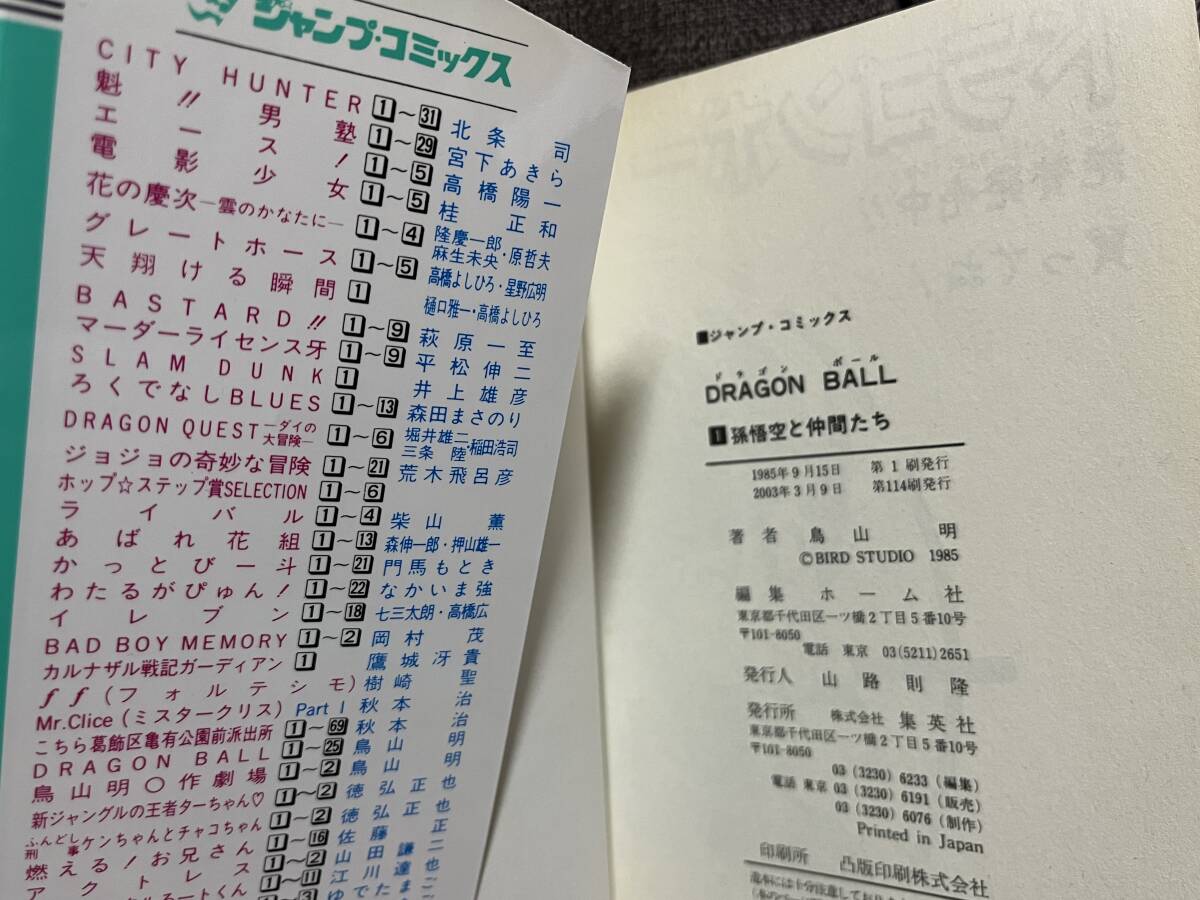 ジャンプ・コミックス
CITY HUNTER 1〜31 北条司
魁!!男塾 1〜29 宮下あきら
エース! 1〜5 高橋陽一
電影少女 1〜5 桂正和
花の慶次―雲のかなたに― 1〜4 隆慶一郎・原哲夫 麻生未央
グレートホース 1〜5 高橋よしひろ・星野広明
天翔ける瞬間 1 樋口雅一・高橋よしひろ
BASTARD!! 1〜9 萩原一至
マーダーライセンス牙 1〜9 平松伸二
SLAM DUNK 1 井上雄彦
ろくでなしBLUES 1〜13 森田まさのり
DRAGON QUEST―ダイの大冒険― 1〜6 堀井雄二 三条陸・稲田浩司
ジョジョの奇妙な冒険 1〜21 荒木飛呂彦
ホップ☆ステップ賞SELECTION 1〜6
ライバル 1〜4 柴山薫
あばれ花組 1〜13 森伸一郎・押山雄一
かっとび一斗 1〜21 門馬もとき
わたるがぴゅん! 1〜22 なかいま強
イレブン 1〜18 七三太朗・高橋広
BAD BOY MEMORY 1〜2 岡村茂
カルナザル戦記ガーディアン 1 鷹城冴貴
ff(フォルテシモ) 樹崎聖
Mr.Clice(ミスタークリス) Part 1 秋本治
こちら葛飾区亀有公園前派出所 1〜69 秋本治
DRAGON BALL 1〜25 鳥山明
鳥山明〇作劇場 1〜2 鳥山明
新ジャングルの王者ターちゃん♡ 1〜2 徳弘正也
ふんどし刑事ケンちゃんとチャコちゃん 1〜2 徳弘正也
燃える!お兄さん 1〜16 佐藤正
アクトレス 1〜2 山田謙二
るーとくん 1〜11 江川達也
1〜3 ゆでたまご
■ジャンプ・コミックス
ドラゴン ボール
DRAGON BALL
1 孫悟空と仲間たち
1985年9月15日 第1刷発行
2003年3月9日 第114刷発行
著者 鳥山明
©BIRD STUDIO 1985
編集 ホーム社
東京都千代田区一ツ橋2丁目5番10号
〒101-8050
電話 東京 03(5211)2651
発行人 山路則隆
発行所 株式会社 集英社
東京都千代田区一ツ橋2丁目5番10号
〒101-8050
03(3230)6233(編集)
電話 東京 03(3230)6191(販売)
03(3230)6076(制作)
Printed in Japan
印刷所 凸版印刷株式会社